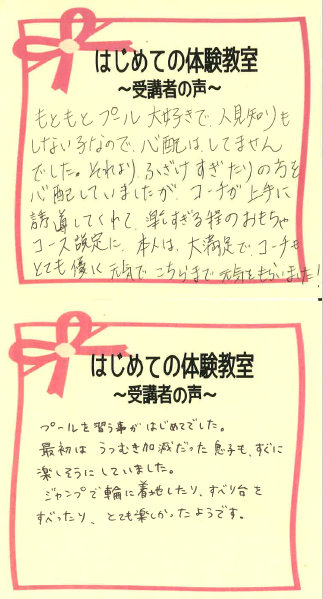 はじめての体験教室
～受講者の声～
もともと プール 大好きで、人見知りも
しない子なので、心配は、してません
でした。それより、ふざけすぎたりの方を
心配していましたが、コーチが上手に
誘導してくれて、楽しすぎる程のおもちゃ
コース設定に、本人は、大満足で、コーチも
とても優しく元気で、こちらまで元気をもらいました！
はじめての体験教室
～受講者の声～
プールを習う事がはじめてでした。
最初は うつむき加減だった 息子も、すぐに
楽しそうにしていました。
ジャンプで輪に着地したり、すべり台を
すべったり、とても楽しかったようです。